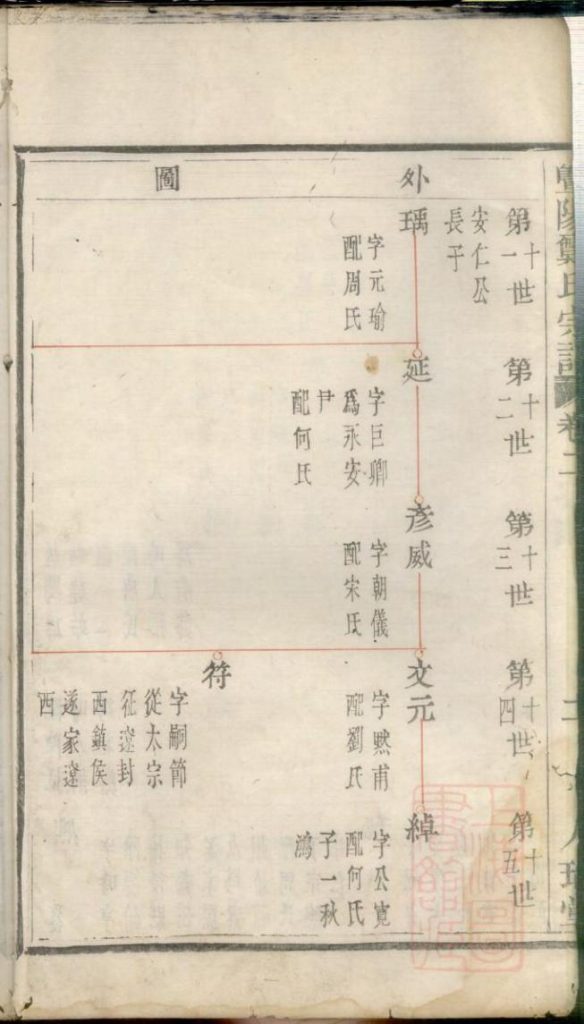 氏宗譜
卷二
二
外圖
第十一世
安仁公
長子
瑀
字元瑜
配周氏
第十二世
延
字巨卿
為永安
尹
配何氏
第十三世
彥威
字朝儀
配宋氏
第十四世
文元
字黙甫
配劉氏
符
字嗣節
從太宗
征遼封
西鎮侯
遂家遼
西
第十五世
綽
字公寬
配何氏
子一秋
鴻